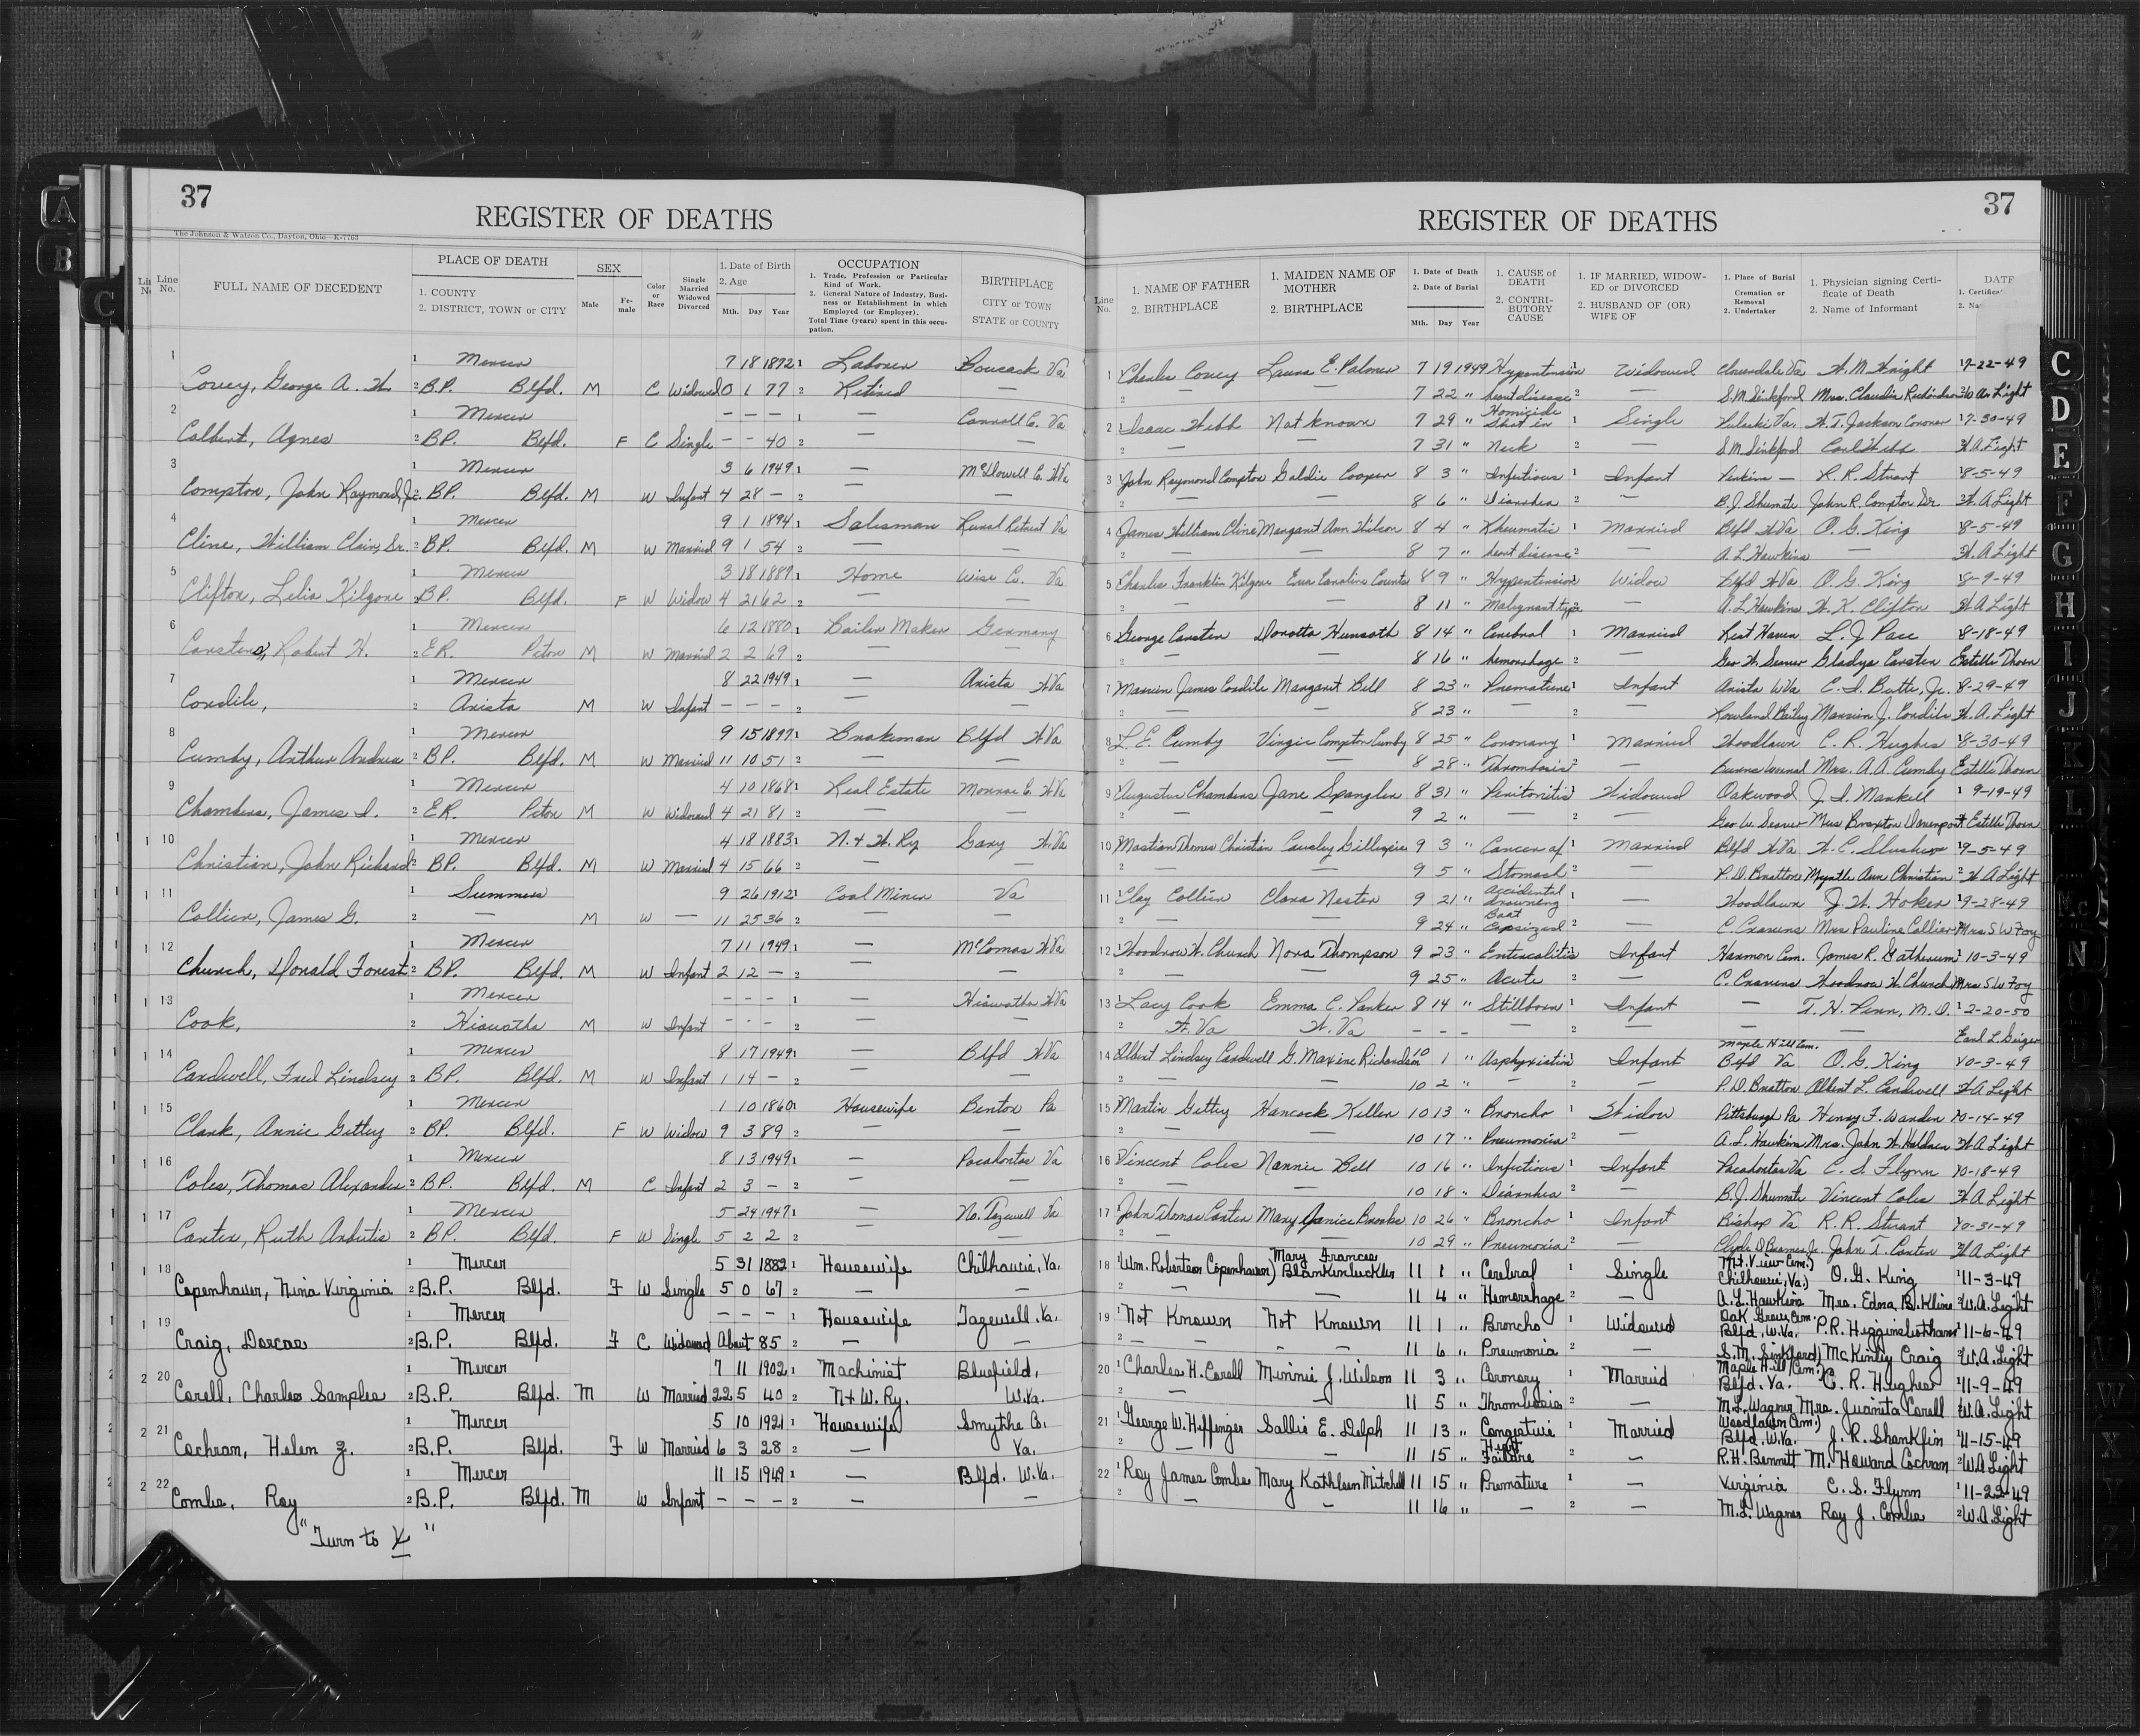 37
REGISTER OF DEATHS
The Johnson & Watson Co., Dayton, Ohio—K-7763
Line No.
FULL NAME OF DECEDENT
PLACE OF DEATH
1. COUNTY
2. DISTRICT, TOWN or CITY
SEX
Male
Female
Color or Race
Single Married Widowed Divorced
1. Date of Birth
2. Age
Mth. Day Year
OCCUPATION
1. Trade, Profession or Particular Kind of Work.
2. General Nature of Industry, Business or Establishment in which Employed (or Employer).
Total Time (years) spent in this occupation.
BIRTHPLACE
CITY or TOWN
STATE or COUNTY
1 1 Mercer 7 18 1872 1 Laborer Va
Covey, George A. W. 2 B.P. Blfd. M C Widowed 0 1 77 2 Retired —
2 1 Mercer — — — 1 — Carroll C. Va
Colbert, Agnes 2 B.P. Blfd. F C Single — — 40 2 — —
3 1 Mercer 3 6 1949 1 — McDowell C. W Va
Compton, John Raymond, Jr. 2 B.P. Blfd. M W Infant 4 28 — 2 — —
4 1 Mercer 9 1 1894 1 Salesman Rural Retreat Va
Cline, William Clair, Sr. 2 B.P. Blfd. M W Married 9 1 54 2 — —
5 1 Mercer 3 18 1887 1 Home Wise Co. Va
Clifton, Lelia Kilgore 2 B.P. Blfd. F W Widow 4 21 62 2 — —
6 1 Mercer 6 12 1880 1 Boiler Maker Germany
Carstens, Robert H. 2 E.R. Pcton M W Married 2 2 69 2 — —
7 1 Mercer 8 22 1949 1 — Arista W Va
Cordile, 2 Arista M W Infant — — — 2 — —
8 1 Mercer 9 15 1897 1 Brakeman Blfd W Va
Cumby, Arthur Andrew 2 B.P. Blfd. M W Married 11 10 51 2 — —
9 1 Mercer 4 10 1868 1 Real Estate Monroe C. W Va
Chambers, James I. 2 E.R. Pcton M W Widowed 4 21 81 2 — —
10 1 Mercer 4 18 1883 1 N. & W. Ry Gary W Va
Christian, John Richard 2 B.P. Blfd. M W Married 4 15 66 2 — —
11 1 Summers 9 26 1912 1 Coal Miner Va
Collier, James G. 2 — M W — 11 25 36 2 — —
12 1 Mercer 7 11 1949 1 — McComas W Va
Church, Donald Forest 2 B.P. Blfd. M W Infant 2 12 — 2 — —
13 1 Mercer — — — 1 — Hiawatha W Va
Cook, 2 Hiawatha M W Infant — — — 2 — —
14 1 Mercer 8 17 1949 1 — Blfd W Va
Cardwell, Fred Lindsey 2 B.P. Blfd. M W Infant 1 14 — 2 — —
15 1 Mercer 1 10 1860 1 Housewife Benton Pa
Clark, Annie Gettey 2 B.P. Blfd. F W Widow 9 3 89 2 — —
16 1 Mercer 8 13 1949 1 — Pocahontas Va
Coles, Thomas Alexander 2 B.P. Blfd. M C Infant 2 3 — 2 — —
17 1 Mercer 5 24 1947 1 — No. Tazewell Va
Carter, Ruth Arbutis 2 B.P. Blfd. F W Single 5 2 2 2 — —
18 1 Mercer 5 31 1882 1 Housewife Chilhowie, Va.
Copenhaver, Nina Virginia 2 B.P. Blfd. F W Single 5 0 67 2 — —
19 1 Mercer — — — 1 Housewife Tazewell, Va.
Craig, Dorcas 2 B.P. Blfd. F C Widowed About 85 2 — —
20 1 Mercer 7 11 1902 1 Machinist Bluefield,
Corell, Charles Samples 2 B.P. Blfd. M W Married 22 5 40 2 N & W. Ry. W.Va.
21 1 Mercer 5 10 1921 1 Housewife Smythe Co.
Cochran, Helen J. 2 B.P. Blfd. F W Married 6 3 28 2 — Va.
22 1 Mercer 11 15 1949 1 — Blfd. W.Va.
Combs, Roy 2 B.P. Blfd. M W Infant — — — 2 — —
"Turn to X"
37
REGISTER OF DEATHS
Line No.
1. NAME OF FATHER
2. BIRTHPLACE
1. MAIDEN NAME OF MOTHER
2. BIRTHPLACE
1. Date of Death
2. Date of Burial
Mth. Day Year
1. CAUSE of DEATH
2. CONTRIBUTORY CAUSE
1. IF MARRIED, WIDOWED or DIVORCED
2. HUSBAND OF (OR) WIFE OF
1. Place of Burial Cremation or Removal
2. Undertaker
1. Physician signing Certificate of Death
2. Name of Informant
DATE
1. Certificat
2. Na
1 1 Charles Covey Laura E. Palmer 7 19 1949 Hypertensive 1 Widowed Va W. M. Wright 7-22-49
2 — — 7 22 " heart disease 2 — S.M. Sinkford Mrs. Claudia Richardson W. A. Light
2 1 Isaac Webb Not known 7 29 " Homicide Shot in 1 Single Pulaski Va. W. T. Jackson Coroner 7-30-49
2 — — 7 31 " Neck 2 — S M. Sinkford Carl Webb W A Light
3 1 John Raymond Compton Goldie Cooper 8 3 " Infectious 1 Infant Perkins — R. R. Stuart 8-5-49
— — 8 6 " Diarrhea 2 — B. J. Shumate John R. Compton Sr. W. A Light
4 James William Cline Margaret Ann Wilson 8 4 " Rheumatic 1 Married Blfd W Va O. G. King 8-5-49
2 — — 8 7 " heart disease 2 — A. L. Hawkins — W. A Light
5 Charles Franklin Kilgore Eva Caroline Counts 8 9 " Hypertension Widow Blfd W Va O. G. King 8-9-49
2 — — 8 11 " Malignant type — A. L. Hawkins W. K. Clifton W A Light
6 George Carsten Dorotta Hunsoth 8 14 " Cerebral 1 Married Rest Haven L. J Pace 8-18-49
2 — — 8 16 " hemorrhage 2 — Geo W. Seaver Gladys Carsten Estelle Thorn
7 Marvin James Cordile Margaret Bell 8 23 " Premature 1 Infant Arista W Va C. I. Butte, Jr. 8-29-49
2 — — 8 23 " — 2 — Rowland Bailey Marvin J. Cordile W. A. Light
8 L. E. Cumby Virgie Compton Cumby 8 25 " Coronary 1 Married Woodlawn C. R. Hughes 8-30-49
2 — — 8 28 " Thrombosis 2 — Mrs. A. A. Cumby Estelle Thorn
9 Augustus Chambers Jane Spangler 8 31 " Peritonitis 1 Widowed Oakwood J. I. Markell 1 9-19-49
— — 9 2 " — 2 — Geo W. Seaver Mrs Braxton Davenport Estelle Thorn
10 Thomas Christian Causley Gillispie 9 3 " Cancer of 1 Married Blfd W Va W. C. Slusher 9-5-49
2 — — 9 5 " Stomach 2 — P. D. Bratton Myrtle Ann Christian 2 W A Light
11 Clay Collier Clara Nester 9 21 " Accidental drowning 1 — Woodlawn J. W. Hoker 9-28-49
2 — — 9 24 " Boat Capsized 2 — C. Cravens Mrs Pauline Collier Mrs S W Foy
12 Woodrow W. Church Nora Thompson 9 23 " Enterocolitis 1 Infant Harmon Cem. James R. Gatherum 10-3-49
2 — — 9 25 " Acute 2 — C. Cravens Woodrow W. Church Mrs S W Foy
13 1 Lacy Cook Emma C. Parker 8 14 " Stillborn 1 Infant — T. H. Penn, M. D. 1 2-20-50
2 W. Va W. Va — — — — 2 — — — Earl L. Geiger
14 Albert Lindsey Cardwell G. Maxine Richardson 10 1 " Asphyxiation 1 Infant Maple Hill Cem. Blfd Va O. G. King 10-3-49
2 — — 10 2 " — 2 — P. D. Bratton Albert L. Cardwell W A Light
15 Martin Gettey Hancock Keller 10 13 " Broncho 1 Widow Pittsburgh Pa Henry F. Warden 10-14-49
2 — — 10 17 " Pneumonia 2 — A. L. Hawkins Mrs. John W. W A Light
16 Vincent Coles Nannie Bell 10 16 " Infectious 1 Infant Pocahontas Va C. S. Flynn 10-18-49
2 — — 10 18 " Diarrhea 2 — B. J. Shumate Vincent Coles W A Light
17 John Thomas Carter Mary Janice Brooks 10 26 " Broncho 1 Infant Bishop Va R. R. Stuart 10-31-49
2 — — 10 29 " Pneumonia 2 — John T. Carter W A Light
18 1 Wm. Robertson Copenhaver) Mary Frances Blankenbeckler 11 1 " Cerebral 1 Single Mt. View Cem.) Chilhowie, Va.) O. G. King 1 11-3-49
— — 11 4 " Hemorrhage 2 — A. L. Hawkins Mrs. Edna B. Kline 2 W. A. Light
19 1 Not Known Not Known 11 1 " Broncho 1 Widowed Oak Grove Cem. Blfd, W.Va. P.R. Higginbotham 1 11-6-49
2 — — 11 6 " Pneumonia 2 — S. M. Sinkford) McKinley Craig 2 W. A. Light
20 1 Charles H. Corell Minnie J. Wilson 11 3 " Coronary 1 Married Maple Hill (Cem.) Blfd. Va. C. R. Hughes 1 11-9-49
2 — — 11 5 " Thrombosis 2 — M. L. Wagner Mrs. Juanita Corell 2 W. A. Light
21 1 George W. Heffinger Sallie E. Delph 11 13 " Congestive 1 Married Woodlawn Cem.) Blfd, W. Va. J. R. Shanklin 1 11-15-49
2 — — 11 15 " Heart Failure 2 — R. H. Bennett M. Howard Cochran 2 W A Light
22 1 Roy James Combs Mary Kathleen Mitchell 11 15 " Premature 1 — Virginia C. S. Flynn 1 11-22-49
2 — — 11 16 " — 2 — M. L. Wagner Roy J. Combs 2 W. A. Light
A
B
C
C
D
E
F
G
H
I
J
K
L
Mc
N
O
W
X
Y
Z